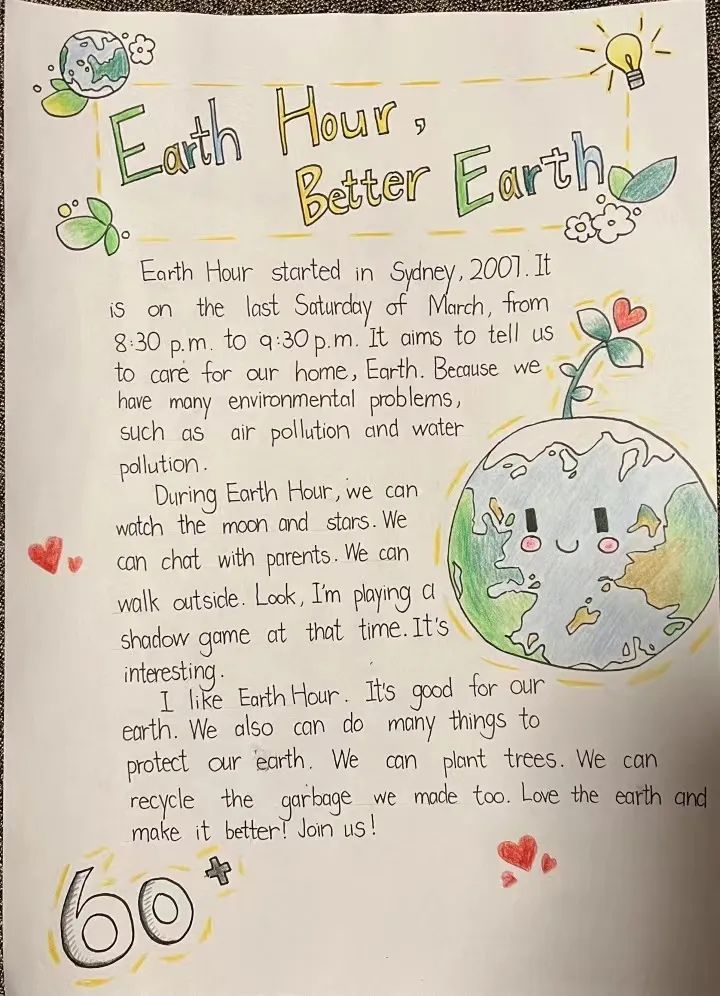 Earth Hour,
Better Earth
Earth Hour started in Sydney, 2007. It
is on the last Saturday of March, from
8:30 p.m. to 9:30 p.m. It aims to tell us
to care for our home, Earth. Because we
have many environmental problems,
such as air pollution and water
pollution.
During Earth Hour, we can
watch the moon and stars. We
can chat with parents. We can
walk outside. Look, I'm playing a
shadow game at that time. It's
interesting.
I like Earth Hour. It's good for our
earth. We also can do many things to
protect our earth. We can plant trees. We can
recycle the garbage we made too. Love the earth and
make it better! Join us!
60+